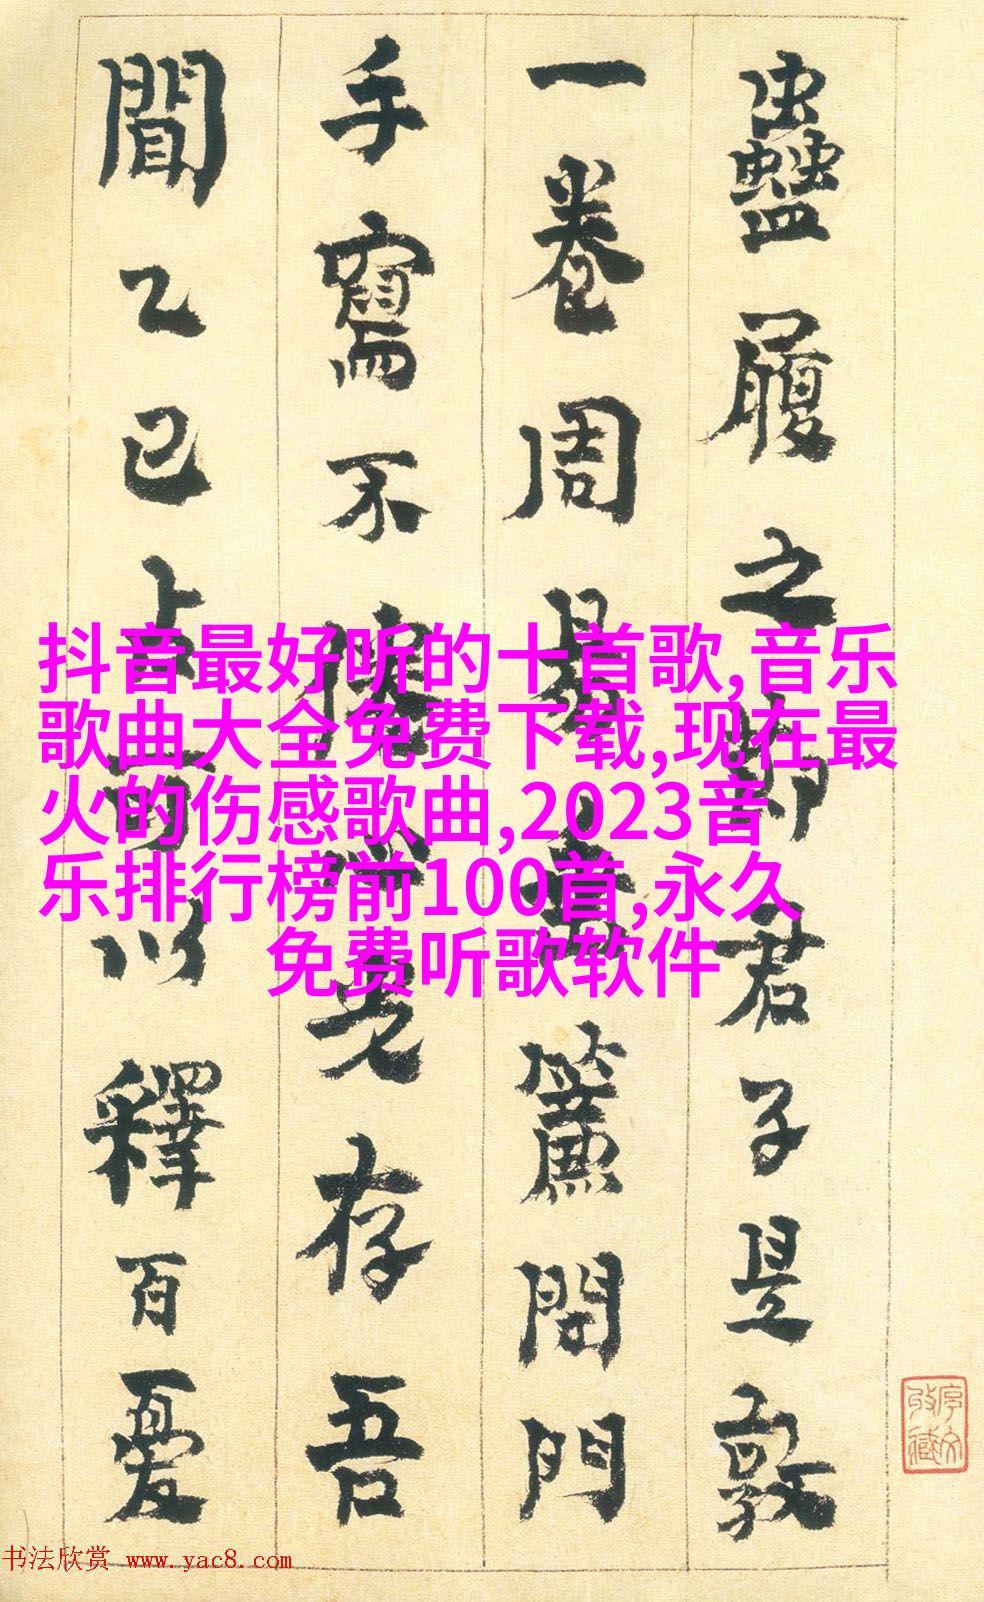 蠱履之節君子是敦
一卷周易簾閉門
手寫不老存吾
聞乙已可以釋百憂
抖音最好听的十首歌,音乐
歌曲大全免费下载,现在最
火的伤感歌曲,2023音
乐排行榜前100首,永久
免费听歌软件
书法欣赏 www.yac8.com